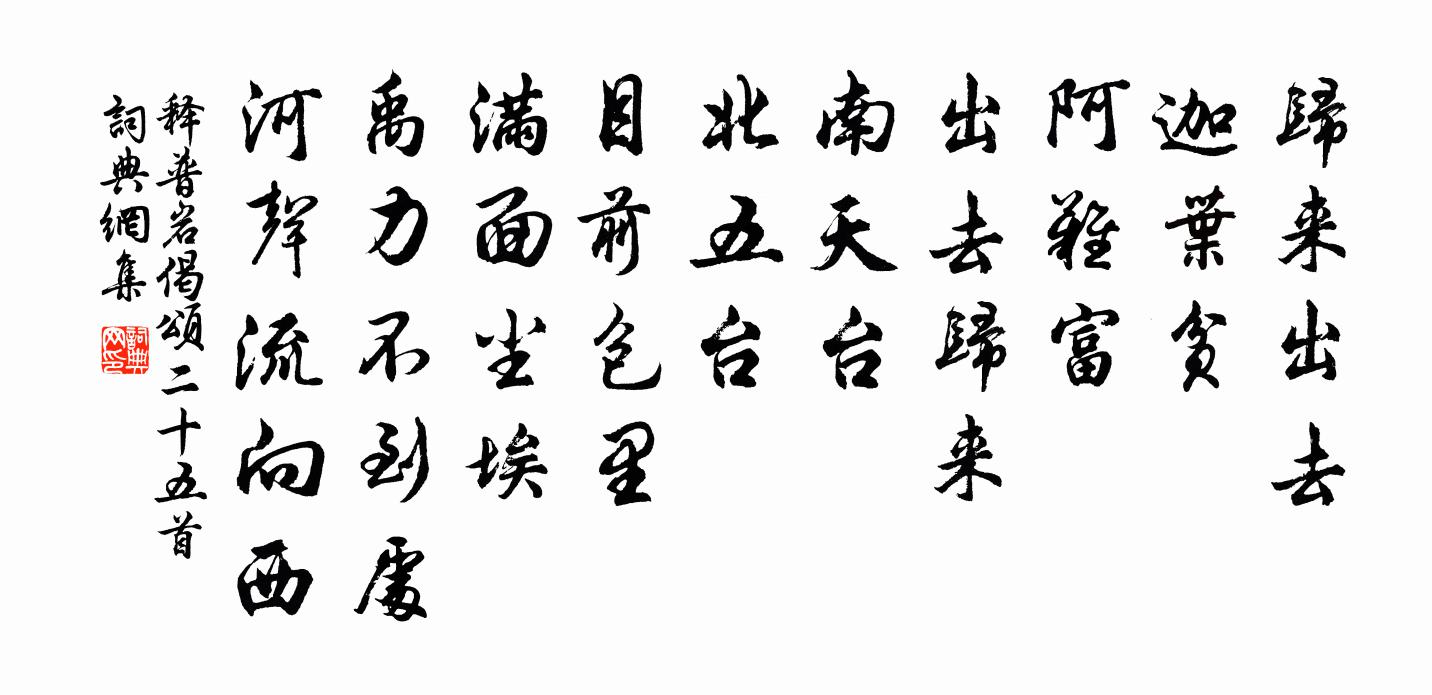 歸来出去
迦葉貧
阿難富
出去歸来
南天台
北五台
目前包里
滿面尘埃
禹力不到處
河聲流向西
释普岩偈頌二十五首
詞典網集
詞典网印